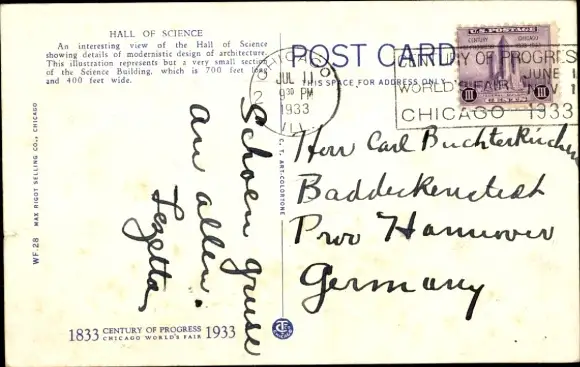 HALL OF SCIENCE
An interesting view of the Hall of Science
showing details of modernistic design of architecture.
This illustration represents but a very small section
of the Science Building, which is 700 feet long
and 400 feet wide.
WF.28 MAX RIGOT SELLING CO., CHICAGO
Schoen gruse
an allen.
1833 CENTURY OF PROGRESS 1933
CHICAGO WORLD'S FAIR
C. T. ART-COLORTONE
POST CARD
THIS SPACE FOR ADDRESS ONLY
CHICAGO
JUL 11
9 30 PM
1933
U.S. POSTAGE
CENTURY
CHICAGO
III CENTS III
CENTURY OF PROGRESS
WORLD'S FAIR
JUNE 1
NOV 1
CHICAGO 1933
Herr Carl
Baddeckenstedt
Prov Hannover
Germany